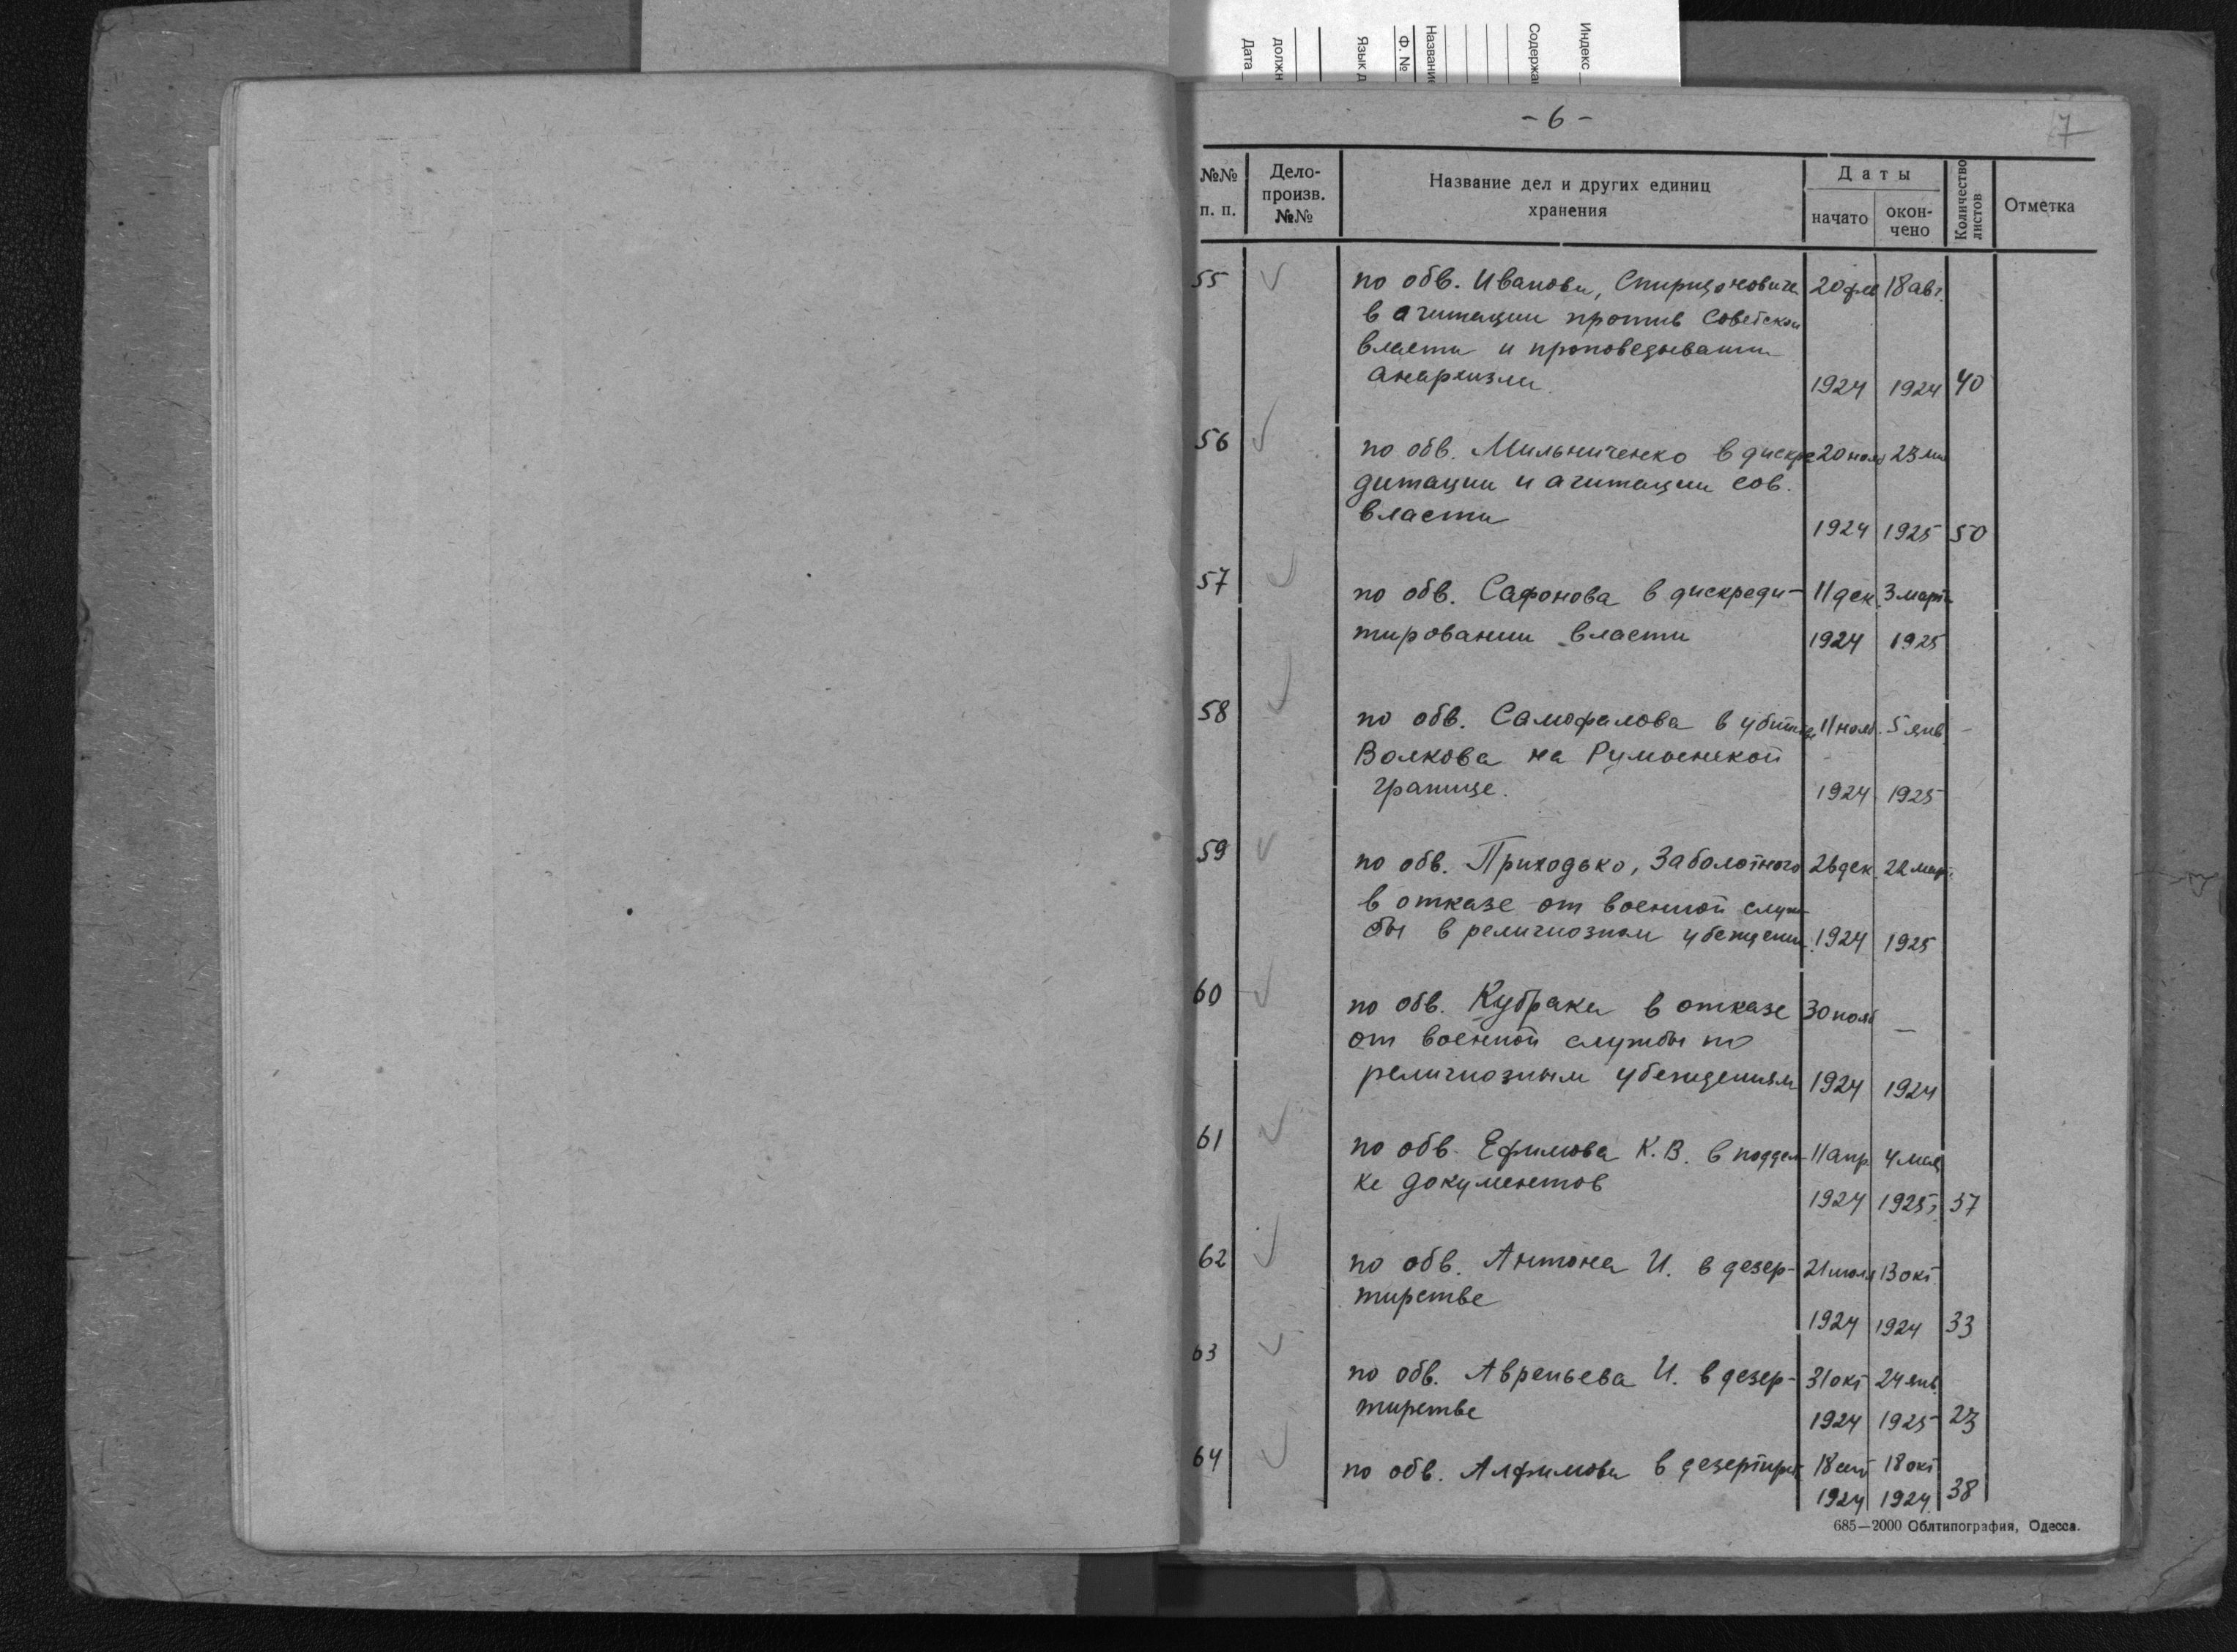 Индекс
Содержа
Название
Ф. №
Язык д
должн
Дата
- 6 -
7
№№ п. п.
Дело-
произв.
№№
Название дел и других единиц
хранения
Даты
начато
окон-
чено
Количество
листов
Отметка
55 по обв. Иванова, Спиридоновича 20 фев 18 авг.
в агитации против Советской
власти и проповедывании
анархизма 1924 1924 40
56 по обв. Мильниченко в дискре 20 нояб 23 мая
дитации и агитации сов.
власти 1924 1925 50
57 по обв. Сафонова в дискреди- 11 дек. 3 март
тировании власти 1924 1925
58 по обв. Самофалова в убийстве 11 нояб. 5 янв. -
Волкова на Румынской
границе. 1924 1925
59 по обв. Приходько, Заболотного 26 дек. 22 мар.
в отказе от военной служ-
бы в религиозном убеждении 1924 1925
60 по обв. Кубрака в отказе 30 нояб —
от военной службы по
религиозным убеждениям 1924 1924
61 по обв. Ефимова К. В. в поддел- 11 апр. 4 мая
ке документов 1924 1925 37
62 по обв. Антона И. в дезер- 21 июля 13 окт
тирстве
1924 1924 33
63 по обв. Аврентьева И. в дезер- 31 окт 24 янв.
тирстве 1924 1925 23
64 по обв. Алфимова в дезертирст 18 сен 18 окт
1924 1924 38
685—2000 Облтипография, Одесса.